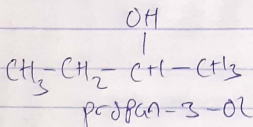 OH
|
CH3-CH2-CH-CH3
propan-3-ol